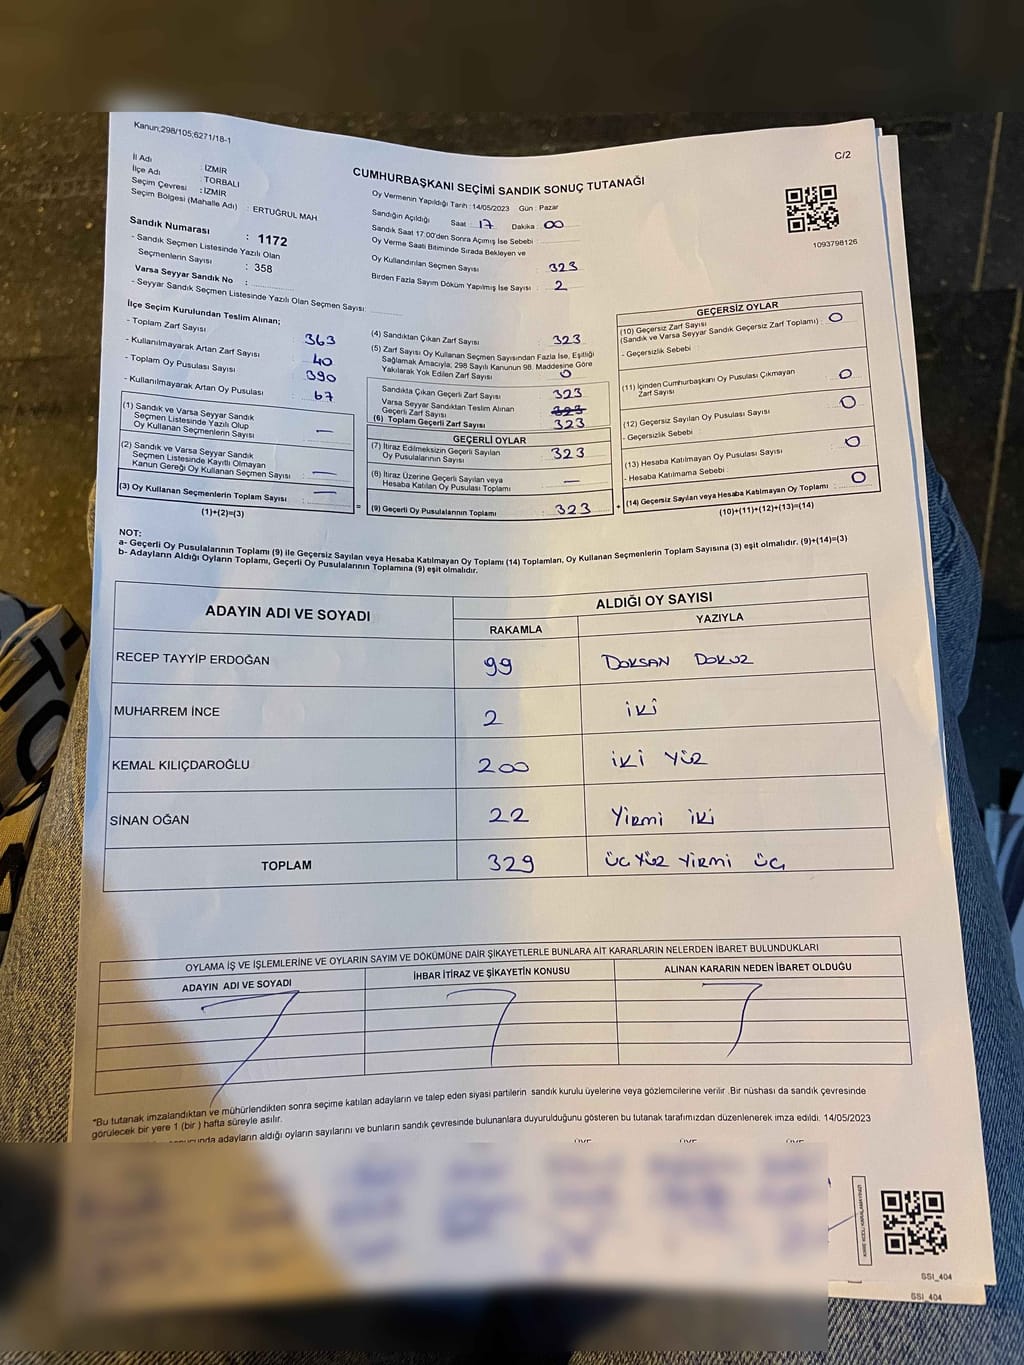 Kanun;298/105;6271/18-1
C/2
İl Adı : İZMİR
İlçe Adı : TORBALI
Seçim Çevresi : İZMİR
Seçim Bölgesi (Mahalle Adı) : ERTUĞRUL MAH
CUMHURBAŞKANI SEÇİMİ SANDIK SONUÇ TUTANAĞI
Oy Vermenin Yapıldığı Tarih : 14/05/2023 Gün : Pazar
Sandığın Açıldığı Saat : 17 Dakika : 00
Sandık Saat 17:00'den Sonra Açımış İse Sebebi :
Oy Verme Saati Bitiminde Sırada Bekleyen ve
Oy Kullandırılan Seçmen Sayısı : 323
Birden Fazla Sayım Döküm Yapılmış İse Sayısı : 2
1093798126
Sandık Numarası : 1172
- Sandık Seçmen Listesinde Yazılı Olan
Seçmenlerin Sayısı : 358
Varsa Seyyar Sandık No :
- Seyyar Sandık Seçmen Listesinde Yazılı Olan Seçmen Sayısı :
İlçe Seçim Kurulundan Teslim Alınan;
- Toplam Zarf Sayısı : 363
- Kullanılmayarak Artan Zarf Sayısı : 40
- Toplam Oy Pusulası Sayısı : 390
- Kullanılmayarak Artan Oy Pusulası : 67
(1) Sandık ve Varsa Seyyar Sandık
Seçmen Listesinde Yazılı Olup
Oy Kullanan Seçmenlerin Sayısı : —
(2) Sandık ve Varsa Seyyar Sandık
Seçmen Listesinde Kayıtlı Olmayan
Kanun Gereği Oy Kullanan Seçmen Sayısı : —
(3) Oy Kullanan Seçmenlerin Toplam Sayısı : —
(1)+(2)=(3)
(4) Sandıktan Çıkan Zarf Sayısı : 323
(5) Zarf Sayısı Oy Kullanan Seçmen Sayısından Fazla İse, Eşitliği
Sağlamak Amacıyla, 298 Sayılı Kanunun 98. Maddesine Göre
Yakılarak Yok Edilen Zarf Sayısı : 0
Sandıkta Çıkan Geçerli Zarf Sayısı : 323
Varsa Seyyar Sandıktan Teslim Alınan
Geçerli Zarf Sayısı : 323
(6) Toplam Geçerli Zarf Sayısı : 323
GEÇERLİ OYLAR
(7) İtiraz Edilmeksizin Geçerli Sayılan
Oy Pusulalarının Sayısı : 323
(8) İtiraz Üzerine Geçerli Sayılan veya
Hesaba Katılan Oy Pusulası Toplamı : —
= (9) Geçerli Oy Pusulalarının Toplamı : 323 +
GEÇERSİZ OYLAR
(10) Geçersiz Zarf Sayısı
(Sandık ve Varsa Seyyar Sandık Geçersiz Zarf Toplamı) : 0
- Geçersizlik Sebebi :
(11) İçinden Cumhurbaşkanı Oy Pusulası Çıkmayan
Zarf Sayısı : 0
(12) Geçersiz Sayılan Oy Pusulası Sayısı : 0
- Geçersizlik Sebebi :
(13) Hesaba Katılmayan Oy Pusulası Sayısı : 0
- Hesaba Katılmama Sebebi :
(14) Geçersiz Sayılan veya Hesaba Katılmayan Oy Toplamı : 0
(10)+(11)+(12)+(13)=(14)
NOT:
a- Geçerli Oy Pusulalarının Toplamı (9) ile Geçersiz Sayılan veya Hesaba Katılmayan Oy Toplamı (14) Toplamları, Oy Kullanan Seçmenlerin Toplam Sayısına (3) eşit olmalıdır. (9)+(14)=(3)
b- Adayların Aldığı Oyların Toplamı, Geçerli Oy Pusulalarının Toplamına (9) eşit olmalıdır.
ADAYIN ADI VE SOYADI
ALDIĞI OY SAYISI
RAKAMLA YAZIYLA
RECEP TAYYİP ERDOĞAN 99 DOKSAN DOKUZ
MUHARREM İNCE 2 İKİ
KEMAL KILIÇDAROĞLU 200 İKİ YÜZ
SİNAN OĞAN 22 YİRMİ İKİ
TOPLAM 329 ÜÇ YÜZ YİRMİ ÜÇ
OYLAMA İŞ VE İŞLEMLERİNE VE OYLARIN SAYIM VE DÖKÜMÜNE DAİR ŞİKAYETLERLE BUNLARA AİT KARARLARIN NELERDEN İBARET BULUNDUKLARI
ADAYIN ADI VE SOYADI İHBAR İTİRAZ VE ŞİKAYETİN KONUSU ALINAN KARARIN NEDEN İBARET OLDUĞU
*Bu tutanak imzalandıktan ve mühürlendikten sonra seçime katılan adayların ve talep eden siyasi partilerin sandık kurulu üyelerine veya gözlemcilerine verilir .Bir nüshası da sandık çevresinde
görülecek bir yere 1 (bir ) hafta süreyle asılır.
adayların aldığı oyların sayılarını ve bunların sandık çevresinde bulunanlara duyurulduğunu gösteren bu tutanak tarafımızdan düzenlenerek imza edildi. 14/05/2023
ÜYE ÜYE ÜYE
KARE KODU KARALAMAYINIZ!
SSI_404
SSI_404